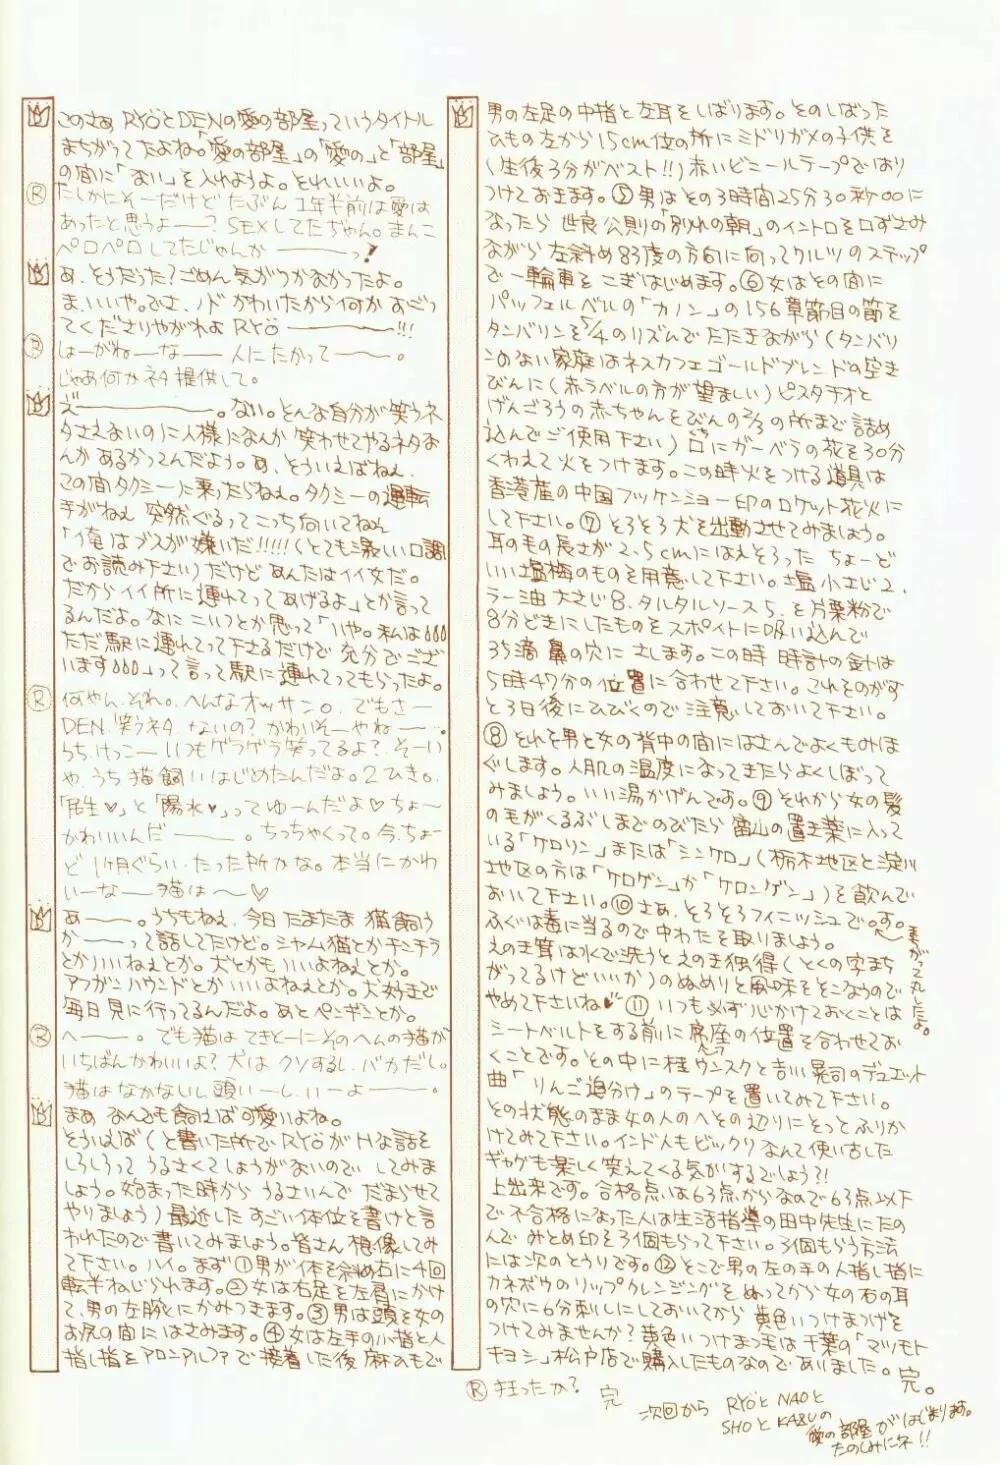 このさぁ RYÖとDENの愛の部屋っていうタイトル
まちがってたよね。「愛の部屋」の「愛の」と「部屋」
の間に「ない」を入れようよ。それいいよ。
Ⓡ たしかにそーだけど たぶん 1年半前は愛は
あったと思うよー? SEXしてたぢゃん。まんこ
ペロペロしてたじゃんか ―――っ!
あ、そうだった?ごめん 気がつかなかったよ。
ま、いいや。でさ、ノド かわいたから何か おごっ
てくださりやがれよ RYÖ ―――!!!
Ⓡ しょーがねーなー 人にたかって―――。
じゃあ何か ネタ 提供して。
え―――――。ない。そんな自分が笑うネ
タさえないのに人様になんか 笑わせてやるネタな
んか あるかってんだよう。あ、そういえばねえ、
この間タクシーに乗ったらねえ。タクシーの運転
手がねえ 突然ぐるってこっち向いてねえ
「俺はブスが嫌いだ!!!!!(とても激しい口調
でお読み下さい)だけど あんたはイイ女だ。
だからイイ所に連れてってあげるよ」とか言って
るんだよ。なにこいつとか思って「いや。私は
ただ駅に連れてって下さるだけで 充分でござ
います」って言って駅に連れてってもらったよ。
Ⓡ 何やん、それ。へんなオッサン。でもさー
DEN、笑うネタ ないの? かわいそーやねー…。
うち、けっこー いつもゲラゲラ笑ってるよ? そーい
や、うち 猫飼いはじめたんだよ。2ひき。
「民生♥」と「陽水♥」ってゆーんだよ♡ ちょ〜
かわいいんだ ―――。ちっちゃくって。今、ちょー
ど 1ヶ月ぐらい、たった所かな。本当にかわ
いーなー 猫は〜♡
あ―――。うちもねえ、今日 たまたま 猫飼う
か―――って話してたけど。シャム猫とかチンチラ
とかいいねえとか。犬とかもいいよねえとか。
アフガンハウンドとか いいよねえとか。犬好きで
毎日見に行ってるんだよ。あとペンギンとか。
Ⓡ へ―――。でも猫は てきとーにそのへんの猫が
いちばんかわいいよ? 犬は クソするし、バカだし。
猫はなかないし 頭いーし、いーよ―――。
まあ なんでも飼えば可愛いよね。
そういえば(と書いた所で RYÖが Hな話を
しろしろって うるさくてしょうがないので してみま
しょう。始まった時から うるさいんで だまらせて
やりましょう)最近した すごい体位を書けと言
われたので 書いてみましょう。皆さん 想像してみ
て下さい。ハイ。まず①男が体を斜め右に4回
転半ねじられます。②女は右足を左肩にかけ
て、男の左腕にかみつきます。③男は頭を女の
お尻の間にはさみます。④女は左手の小指と人
指し指をアロンアルファで接着した後 麻ひもで
男の左足の中指と左耳をしばります。そのしばった
ひもの左から15cm位の所にミドリガメの子供を
(生後3分がベスト!!)赤いビニールテープではり
つけておきます。⑤男はその3時間25分30秒00に
なったら 世良公則の「別れの朝」のイントロを口ずさみ
ながら 左斜め83度の方向に向ってワルツのステップ
で一輪車を こぎはじめます。⑥女はその間に
パッフェルベルの「カノン」の156章節目の節を
タンバリンを5/4のリズムで たたきながら(タンバリ
ンのない家庭はネスカフェゴールドブレンドの空き
びんに(赤ラベルの方が望ましい)ピスタチオと
げんごろうの赤ちゃんをびんの2/3の所まで詰め
込んでご使用下さい)口にガーベラの花を30分
くわえて火をつけます。この時火をつける道具は
香港産の中国フッケンショー印のロケット花火に
して下さい。⑦そろそろ犬を出動させてみましょう。
耳の毛の長さが2.5cmにはえそろった ちょーど
いい塩梅のものを用意して下さい。塩小さじ2、
ラー油 大さじ8、タルタルソース5、を片栗粉で
8分どきにしたものをスポイトに吸い込んで
35滴 鼻の穴に さします。この時 時計の針は
5時47分の位置に合わせて下さい。これをのがす
と3日後にひびくので 注意しておいて下さい。
⑧それを男と女の背中の間にはさんでよくもみほ
ぐします。人肌の温度になってきたらよくしぼって
みましょう。いい湯かげんです。⑨それから女の髪
の毛がくるぶしまでのびたら 富山の置き薬に入って
いる「ケロリン」または「シンケロ」(栃木地区と淀川
地区の方は「ケロゲン」か「ケロンゲン」)を飲んで
おいて下さい。⑩さあ、そろそろフィニッシュです。
ふぐは毒に当るので 中わたを取りましょう。
えのき茸は水で洗うとえのき独得(とくの字まち
がってるけどいいか)のぬめりと風味をそこなうので
やめて下さいね ⑪いつも必ず心がけておくことは
まがって丸したよ。
シートベルトをする前に席座の位置を合わせてお
くことです。その中に桂ウンスクと吉川晃司のデュエット
曲「りんご追分け」のテープを置いてみて下さい。
その状態のまま女の人のへその辺りにそっとふりか
けてみて下さい。インド人もビックリなんて使い古した
ギャグも楽しく笑えてくる気がするでしょう?!
上出来です。合格点は63点からなので63点以下
で不合格になった人は生活指導の田中先生にたの
んで みとめ印を3個もらって下さい。3個もらう方法
には次のとうりです。⑫そこで男の左の手の人指し指に
カネボウのリップクレンジングを ぬってから女の右の耳
の穴に6分刺しにしておいてから 黄色いつけまつげを
つけてみませんか? 黄色いつけまつ毛は千葉の「マツモト
キヨシ」松戸店で購入したものなので ありました。完。
Ⓡ 狂ったか? 完
次回から RYÖと NAOと
SHOとKAZUの
愛の部屋がはじまります。
たのしみにネ!!